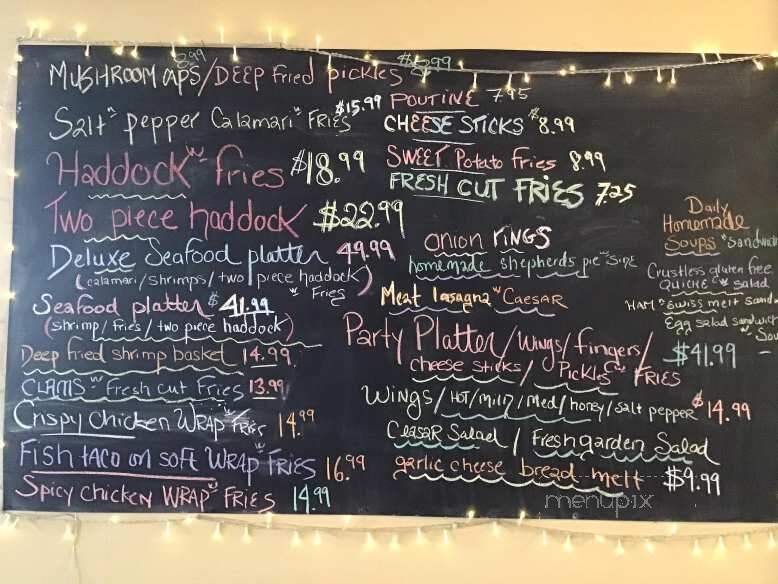 8.99
MUSHROOM CAPS/DEEP fried pickles
Salt n pepper Calamari w FRIES $15.99
Haddock w fries $18.99
Two piece haddock $22.99
Deluxe Seafood platter 49.99
(calamari/shrimps/two piece haddock)
w Fries
Seafood platter $41.99
(shrimp/fries/two piece haddock)
Deep fried shrimp basket 14.99
CLAMS w Fresh cut Fries 13.99
Crispy Chicken WRAP w Fries 14.99
Fish taco on soft WRAP w FRIES 16.99
Spicy Chicken WRAP w FRIES 14.99
POUTINE 7.95
CHEESE STICKS $8.99
SWEET Potato fries 8.99
FRESH CUT FRIES 7.25
onion rings
homemade shepherds pie w side
Meat lasagna w CAESAR
Party Platter/wings/fingers/
cheese sticks/Pickles w FRIES
$41.99
Wings/HOT/mild/med/honey/salt pepper $14.99
Ceasar Salad/Fresh garden Salad
garlic cheese bread melt $9.99
Daily
Homemade
Soups w Sandwich
Crustless gluten free
QUICHE w Salad
HAM n Swiss melt sand
Egg Salad Sandwich
w Sou
menupix